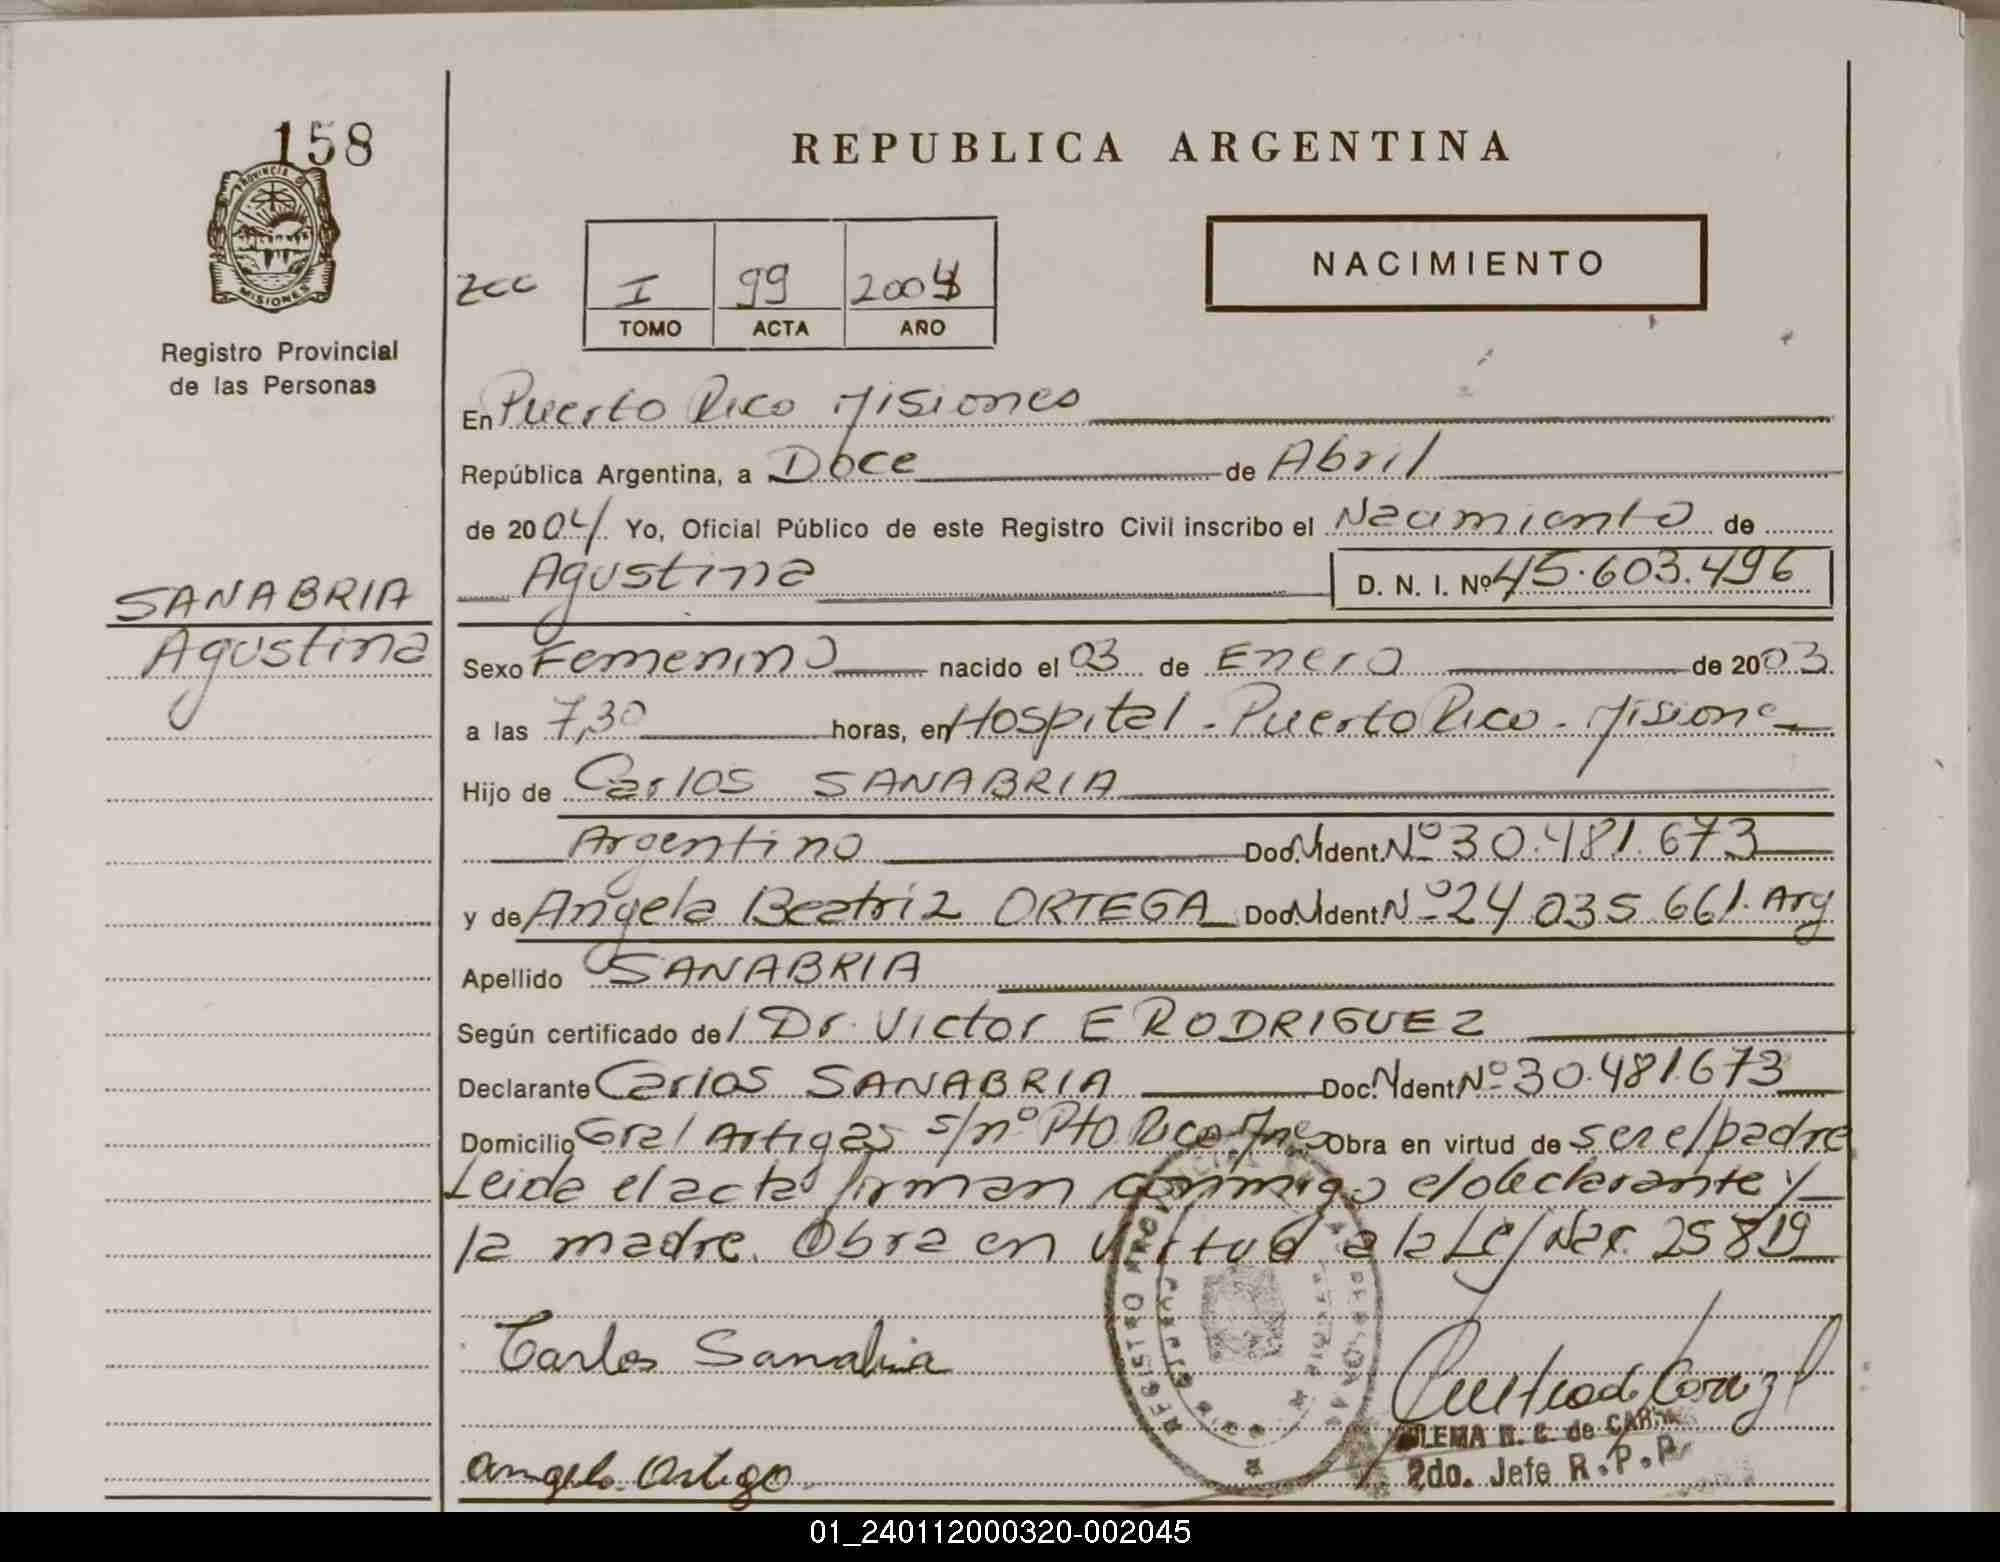 158
PROVINCIA DE
MISIONES
Registro Provincial
de las Personas
REPUBLICA ARGENTINA
NACIMIENTO
I 99 2004
TOMO ACTA AÑO
En Puerto Rico Misiones
República Argentina, a Doce de Abril
de 2004 Yo, Oficial Público de este Registro Civil inscribo el Nacimiento de
Agustina D. N. I. Nº 45.603.496
SANABRIA
Agustina
Sexo Femenino nacido el 03 de Enero de 2003
a las 7,30 horas, en Hospital - Puerto Rico - Misiones
Hijo de Carlos SANABRIA
Argentino Doc. N Ident. Nº 30.481.673
y de Angela Beatriz ORTEGA Doc. N Ident Nº 24 035 661. Arg
Apellido SANABRIA
Según certificado del Dr. Victor E RODRIGUEZ
Declarante Carlos SANABRIA Doc. N Ident Nº 30.481.673
Domicilio Gral Artigas s/nº Pto Rico Mnes Obra en virtud de ser el padre
Leida el acta firman conmigo el declarante y
la madre. Obra en virtud a la Ley Nac. 25819
REGISTRO PROVINCIAL
Carlos Sanabria
Angela Ortega
ULEMA N. C. de
2do. Jefe R.P.P.
01_240112000320-002045